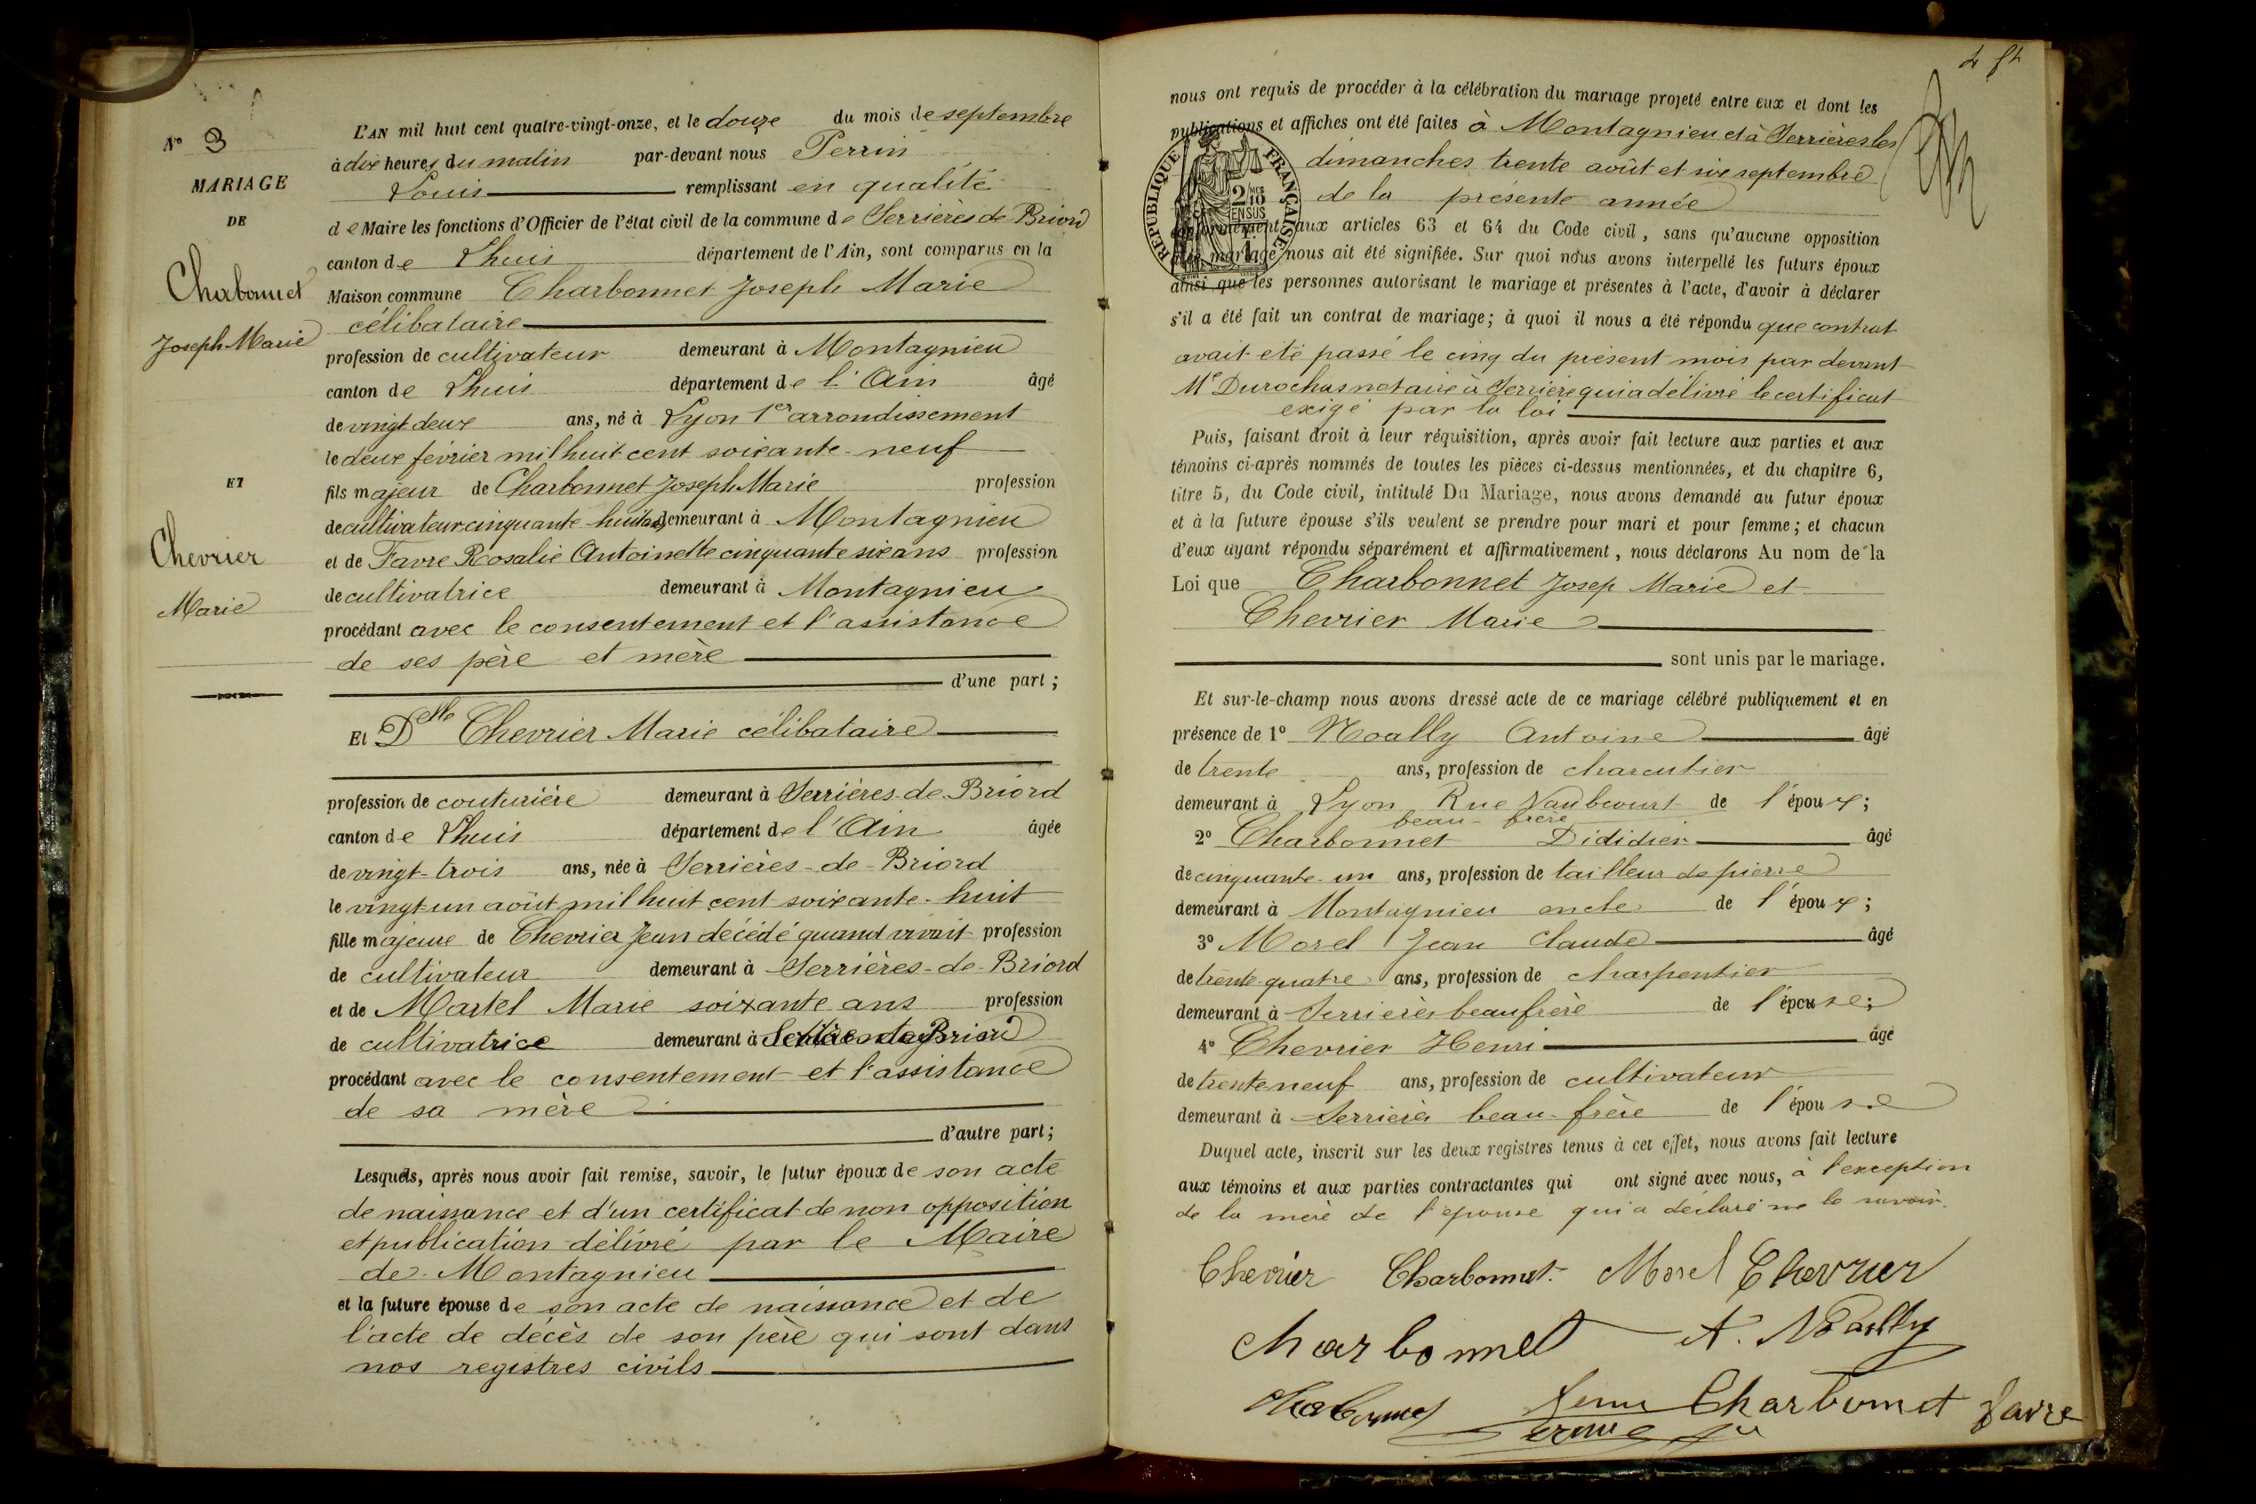 N° 3
MARIAGE
DE
Charbonnet
Joseph Marie
ET
Chevrier
Marie
L'AN mil huit cent quatre-vingt-onze, et le douze du mois de septembre
à dix heures du matin par-devant nous Perrin
Louis remplissant en qualité
de Maire les fonctions d'Officier de l'état civil de la commune de Serrières de Briord
canton de Lhuis département de l'Ain, sont comparus en la
Maison commune Charbonnet Joseph Marie
célibataire
profession de cultivateur demeurant à Montagnieu
canton de Lhuis département de l'Ain âgé
de vingt deux ans, né à Lyon 1er arrondissement
le deux février mil huit cent soixante-neuf
fils majeur de Charbonnet Joseph Marie profession
de cultivateur cinquante-huit ans demeurant à Montagnieu
et de Favre Rosalie Antoinette cinquante six ans profession
de cultivatrice demeurant à Montagnieu
procédant avec le consentement et l'assistance
de ses père et mère
d'une part;
Et Delle Chevrier Marie célibataire
profession de couturière demeurant à Serrières-de-Briord
canton de Lhuis département de l'Ain âgée
de vingt-trois ans, née à Serrières-de-Briord
le vingt-un août mil huit cent soixante-huit
fille majeure de Chevrier Jean décédé quand vivait profession
de cultivateur demeurant à Serrières-de-Briord
et de Martel Marie soixante ans profession
de cultivatrice demeurant à Briord
procédant avec le consentement et l'assistance
de sa mère
d'autre part;
Lesquels, après nous avoir fait remise, savoir, le futur époux de son acte
de naissance et d'un certificat de non opposition
et publication délivré par le Maire
de Montagnieu
et la future épouse de son acte de naissance et de
l'acte de décès de son père qui sont dans
nos registres civils
nous ont requis de procéder à la célébration du mariage projeté entre eux et dont les
publications et affiches ont été faites à Montagnieu et à Serrières les
dimanches trente août et six septembre
de la présente année
RÉPUBLIQUE FRANÇAISE
2/10
EN SUS
conformément aux articles 63 et 64 du Code civil, sans qu'aucune opposition
mariage nous ait été signifiée. Sur quoi nous avons interpellé les futurs époux
ainsi que les personnes autorisant le mariage et présentes à l'acte, d'avoir à déclarer
s'il a été fait un contrat de mariage; à quoi il nous a été répondu que contrat
avait été passé le cinq du présent mois par devant
Me Durochas notaire à Serrière qui a délivré le certificat
exigé par la loi
Puis, faisant droit à leur réquisition, après avoir fait lecture aux parties et aux
témoins ci-après nommés de toutes les pièces ci-dessus mentionnées, et du chapitre 6,
titre 5, du Code civil, intitulé Du Mariage, nous avons demandé au futur époux
et à la future épouse s'ils veulent se prendre pour mari et pour femme; et chacun
d'eux ayant répondu séparément et affirmativement, nous déclarons Au nom de la
Loi que Charbonnet Josep Marie et
Chevrier Marie
sont unis par le mariage.
Et sur-le-champ nous avons dressé acte de ce mariage célébré publiquement et en
présence de 1° Noally Antoine âgé
de trente ans, profession de charcutier
demeurant à Lyon Rue Vaubecourt de l'époux;
beau-frère
2° Charbonnet Dididier âgé
de cinquante-un ans, profession de tailleur de pierre
demeurant à Montagnieu oncle de l'époux;
3° Morel Jean Claude âgé
de trente quatre ans, profession de charpentier
demeurant à Serrières beau frère de l'épouse;
4° Chevrier Henri âgé
de trente neuf ans, profession de cultivateur
demeurant à Serrières beau-frère de l'épouse
Duquel acte, inscrit sur les deux registres tenus à cet effet, nous avons fait lecture
aux témoins et aux parties contractantes qui ont signé avec nous, à l'exception
de la mère de l'épouse qui a déclaré ne le savoir.
Chevrier Charbonnet Morel Chevrier
Charbonnet A. Noailly
Charbonnet Charbonnet Favre